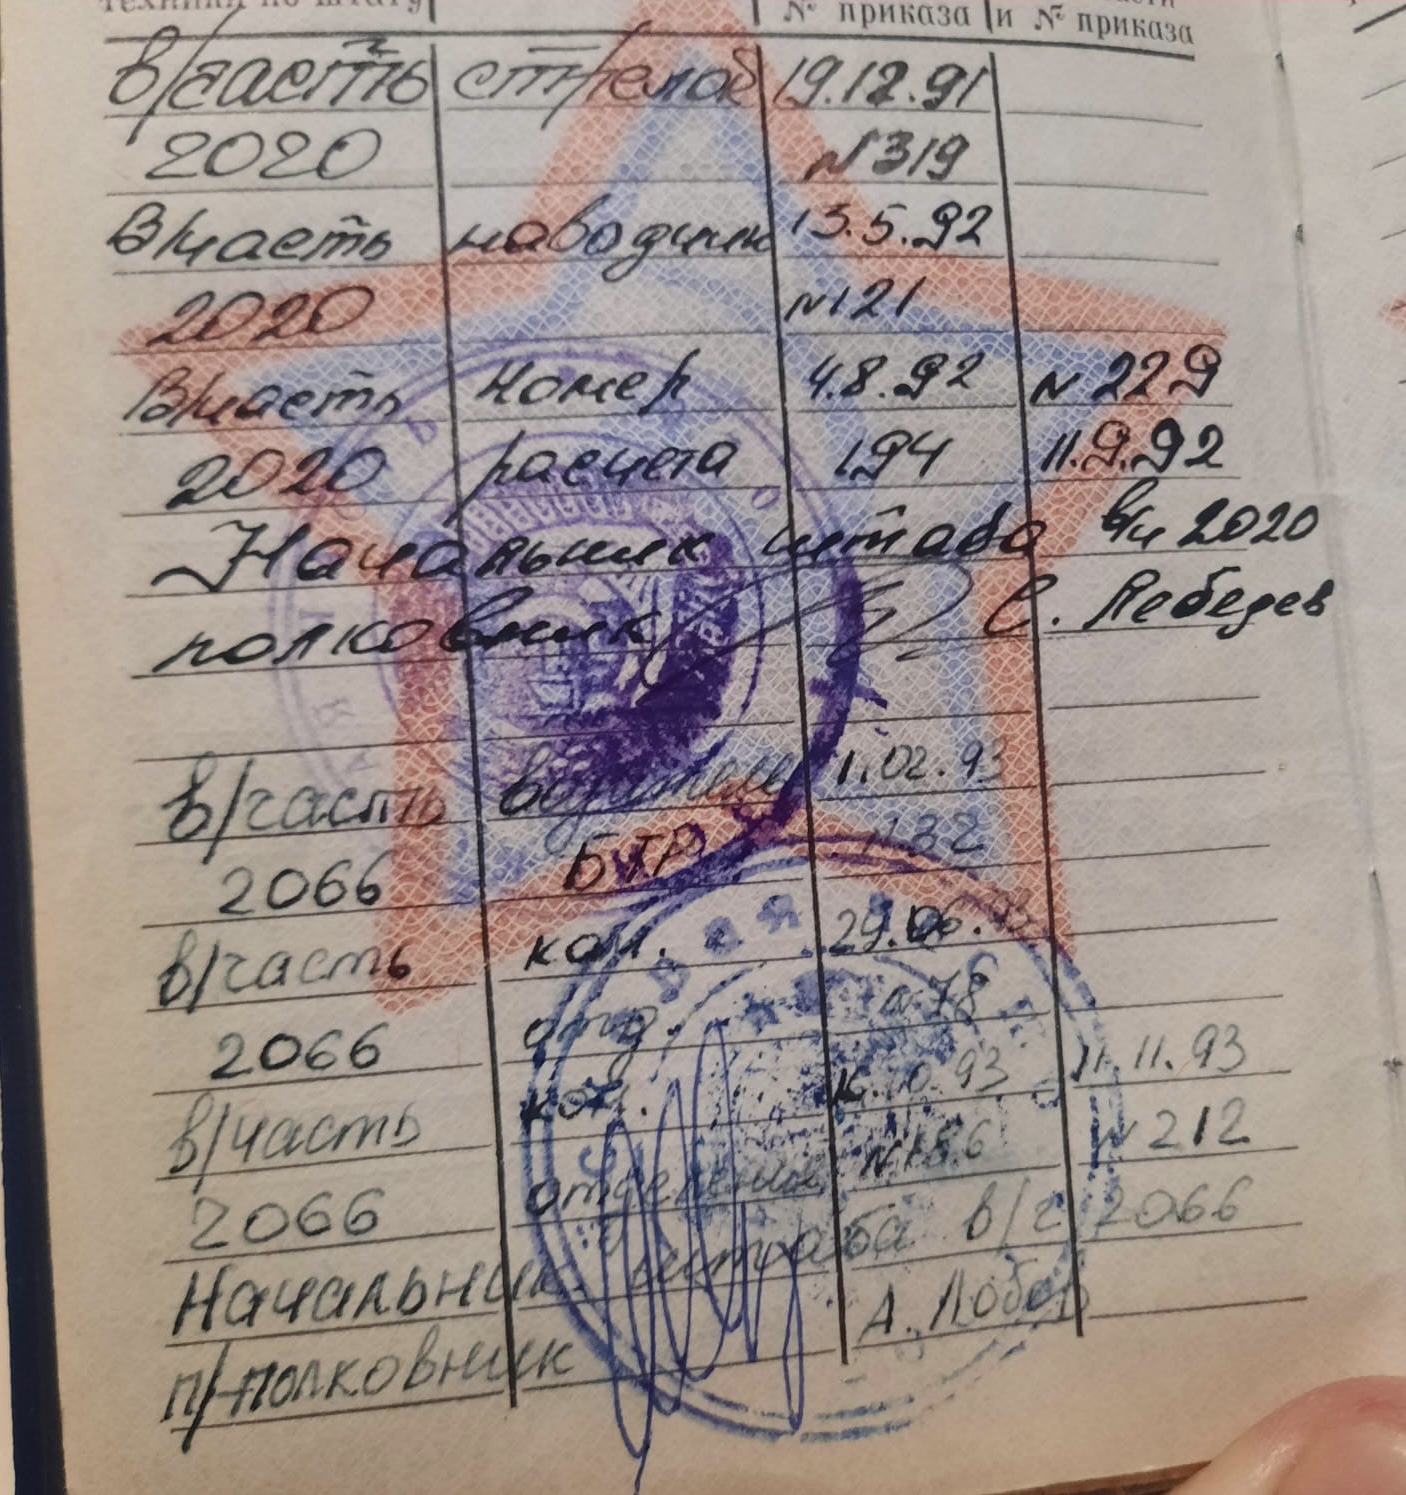 техники по штату
№ приказа и № приказа
в/часть стрелок 19.12.91
2020 №319
В/часть наводчик 13.5.92
2020 №121
В/часть номер 4.8.92 №229
2020 расчета 194 11.9.92
Начальник штаба в/ч 2020
полковник С. Лебедев
в/часть водитель 1.02.93
2066 БТР №32
в/часть ком. 29.06.93
2066 отд. №78
в/часть ком. 16.10.93 11.11.93
2066 отделения №186 №212
Начальник штаба в/ч 2066
п/полковник А. Лобов